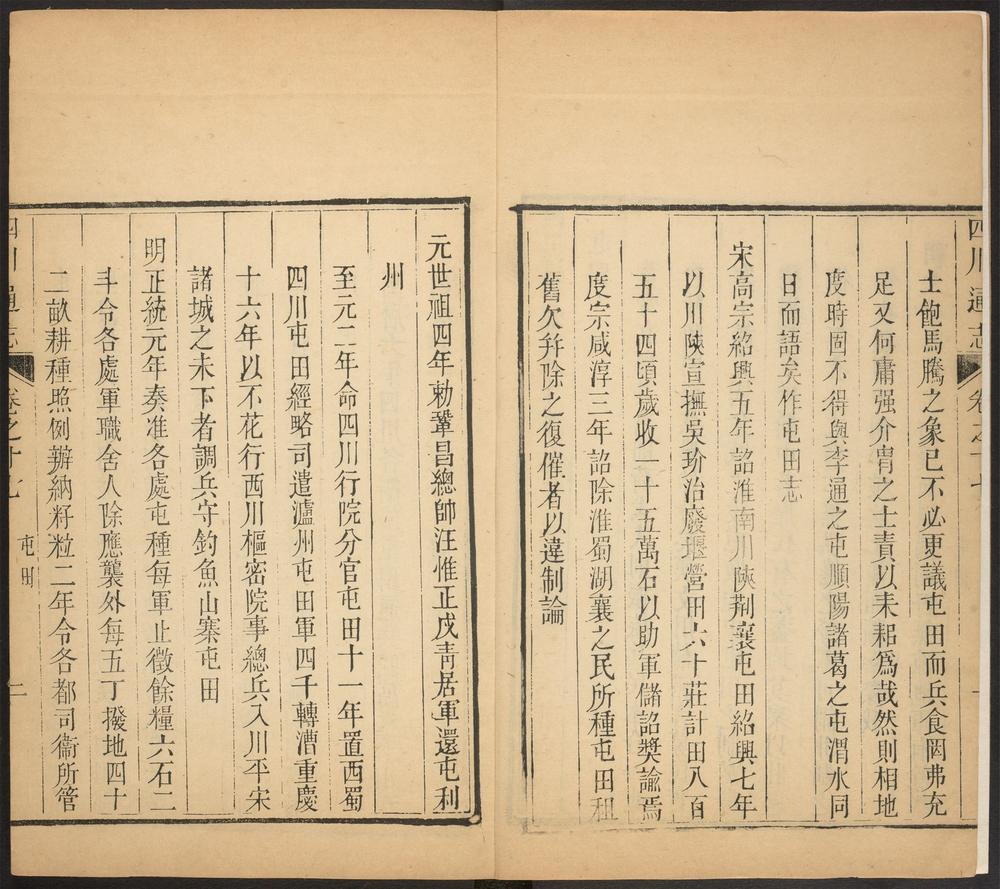 四川通志
卷之十七
一
士飽馬騰之象已不必更議屯田而兵食罔弗充
足又何庸强介冑之士責以耒耜爲哉然則相地
度時固不得與李通之屯順陽諸葛之屯渭水同
日而語矣作屯田志
宋高宗紹興五年詔淮南川陝荆襄屯田紹興七年
以川陝宣撫吳玠治廢堰營田六十莊計田八百
五十四頃歲收二十五萬石以助軍儲詔奬諭焉
度宗咸淳三年詔除淮蜀湖襄之民所種屯田租
舊欠幷除之復催者以違制論
元世祖四年勅鞏昌總帥汪惟正戍靑居軍還屯利
州
至元二年命四川行院分官屯田十一年置西蜀
四川屯田經略司遣瀘州屯田軍四千轉漕重慶
十六年以不花行西川樞密院事總兵入川平宋
諸城之未下者調兵守釣魚山寨屯田
明正統元年奏准各處屯種每軍止徵餘糧六石二
斗令各處軍職舍人除應襲外每五丁撥地四十
二畝耕種照例辦納籽粒二年令各都司衞所管
四川通志
卷之十七
屯田
二